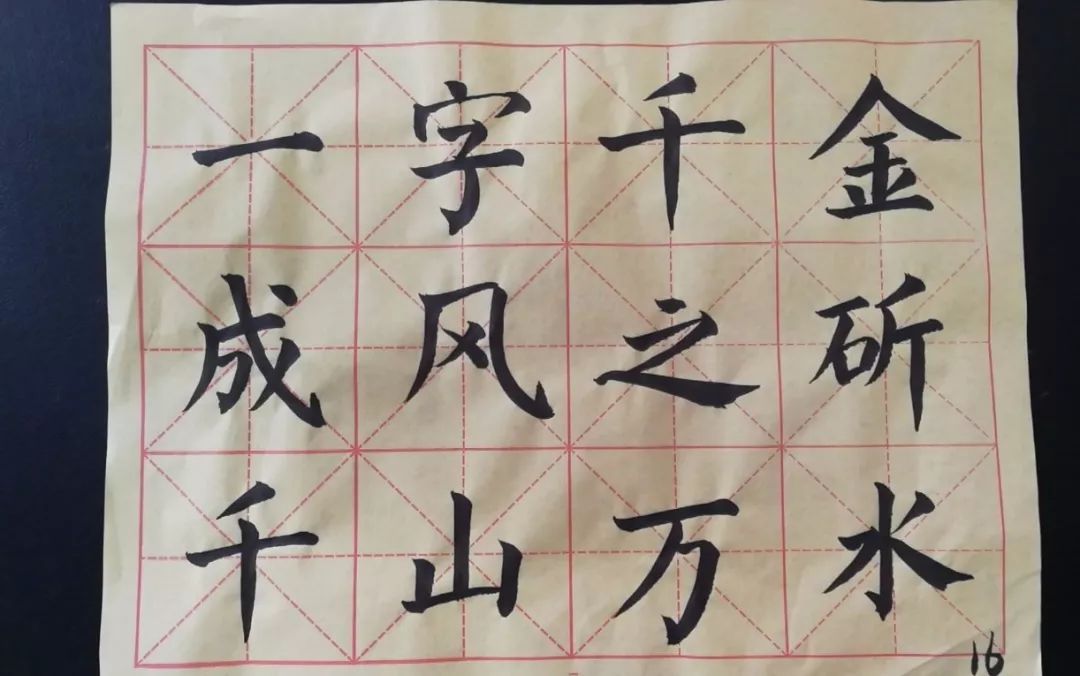 一字千金
成风之斫
千山万水
16